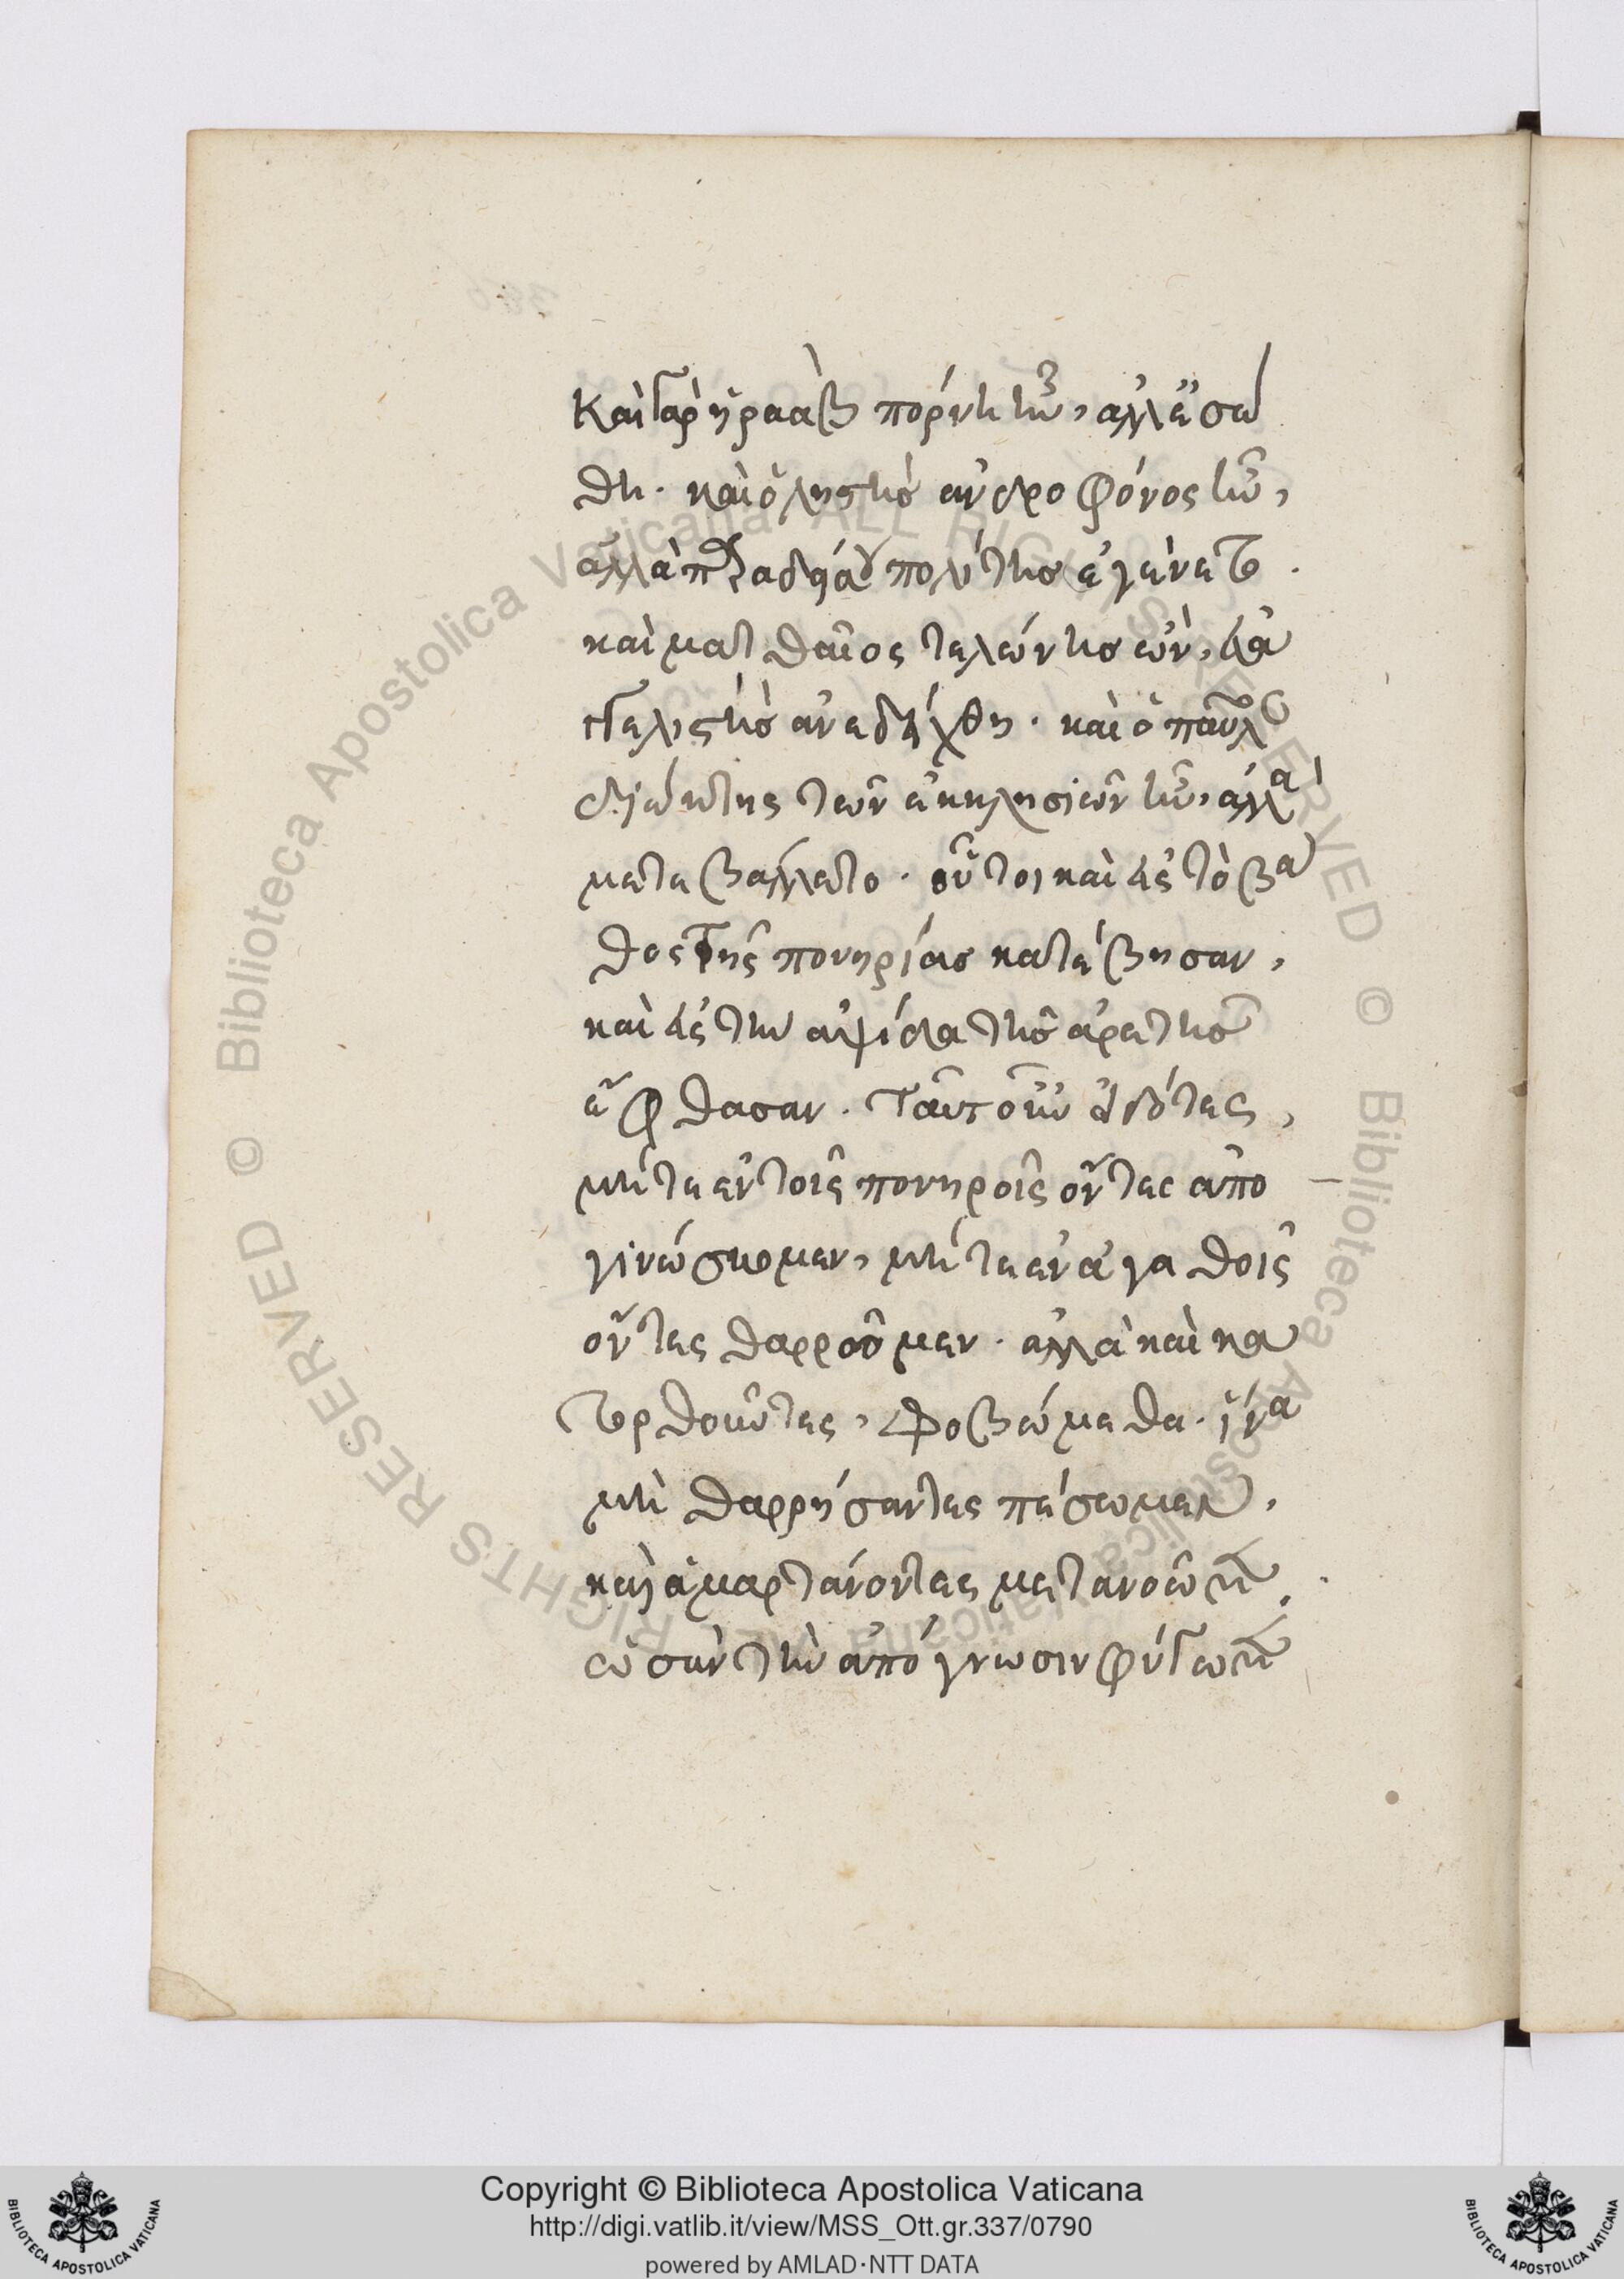 καὶ γὰρ ἡ ῥαὰβ πόρνη ἦν, ἀλλ' ἐσώ
θη. καὶ ὁ ληστὴς ἀνδροφόνος ἦν,
ἀλλὰ παραδείσου πολίτης ἐγένετο.
καὶ ματθαῖος τελώνης ὢν, εὐα
γγελιστὴς ἀνεδείχθη. καὶ ὁ παῦλος
διώκτης τῶν ἐκκλησιῶν ἦν, ἀλλὰ
μετεβάλλετο. οὗτοι καὶ εἰς τὸ βά
θος τῆς πονηρίας κατέβησαν,
καὶ εἰς τὴν ἁψίδα τῆς ἀρετῆς
ἔφθασαν. ταῦτ' οὖν εἰδότες,
μήτε ἐν τοῖς πονηροῖς ὄντες ἀπο
γινώσκομεν, μήτε ἐν ἀγαθοῖς
ὄντες θαρροῦμεν. ἀλλὰ καὶ κα
τορθοῦντες, φοβώμεθα. ἵνα
μὴ θαρρήσαντες πέσωμεν,
καὶ ἁμαρτάνοντες μετανοῶμεν,
τὴν ἀπόγνωσιν φύγωμεν
Copyright © Biblioteca Apostolica Vaticana
http://digi.vatlib.it/view/MSS_Ott.gr.337/0790
powered by AMLAD·NTT DATA
BIBLIOTECA APOSTOLICA VATICANA
BIBLIOTECA APOSTOLICA VATICANA
© Biblioteca Apostolica Vaticana ALL RIGHTS RESERVED © Biblioteca Apostolica Vaticana ALL RIGHTS RESERVED